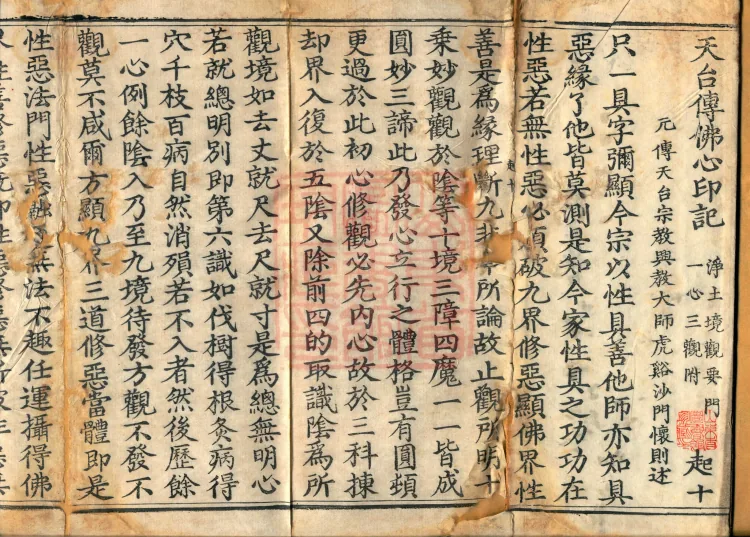 天台傳佛心印記 淨土境觀要門 一心三觀附 起十
元傳天台宗教興教大師虎谿沙門懷則述
只一具字彌顯今宗以性具善他師亦知具
惡緣了他皆莫測是知今家性具之功功在
性惡若無性惡必須破九界修惡顯佛界性
善是為緣理斷九非今所論故止觀所明十
起十
乘妙觀觀於陰等十境三障四魔一一皆成
圓妙三諦此乃發心立行之體格豈有圓頓
更過於此初心修觀必先內心故於三科揀
却界入復於五陰又除前四的取識陰為所
觀境如去丈就尺去尺就寸是為總無明心
若就總明別即第六識如伐樹得根灸病得
穴千枝百病自然消殞若不入者然後歷餘
一心例餘陰入乃至九境待發方觀不發不
觀莫不咸爾方顯九界三道修惡當體即是
性惡法門性惡融通無法不趣任運攝得佛